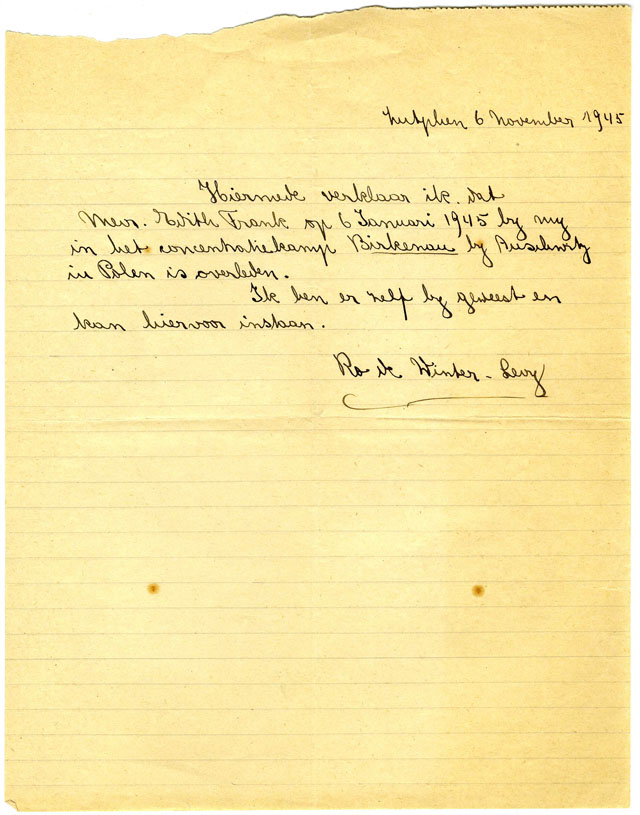 Zutphen 6 November 1945
Hiermede verklaar ik. dat
Mevr. Edith Frank op 6 Januari 1945 by my
in het concentratiekamp Birkenau by Auschwitz
in Polen is overleden.
Ik ben er zelf by geweest en
kan hiervoor instaan.
Ro de Winter - Levy